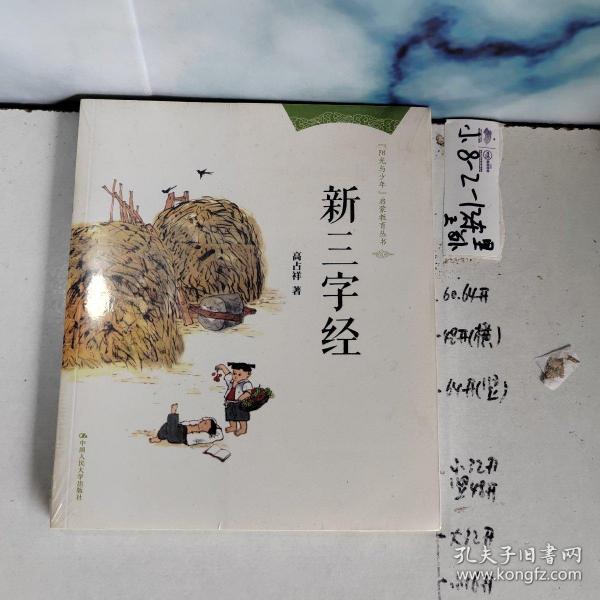 「阳光与少年」启蒙教育丛书
新三字经
高占祥 著
中国人民大学出版社
小8-2-12左里
60.64开
48开(横)
64开(竖)
小32开
竖48开
大32开
16开
孔夫子旧书网
www.kongfz.com